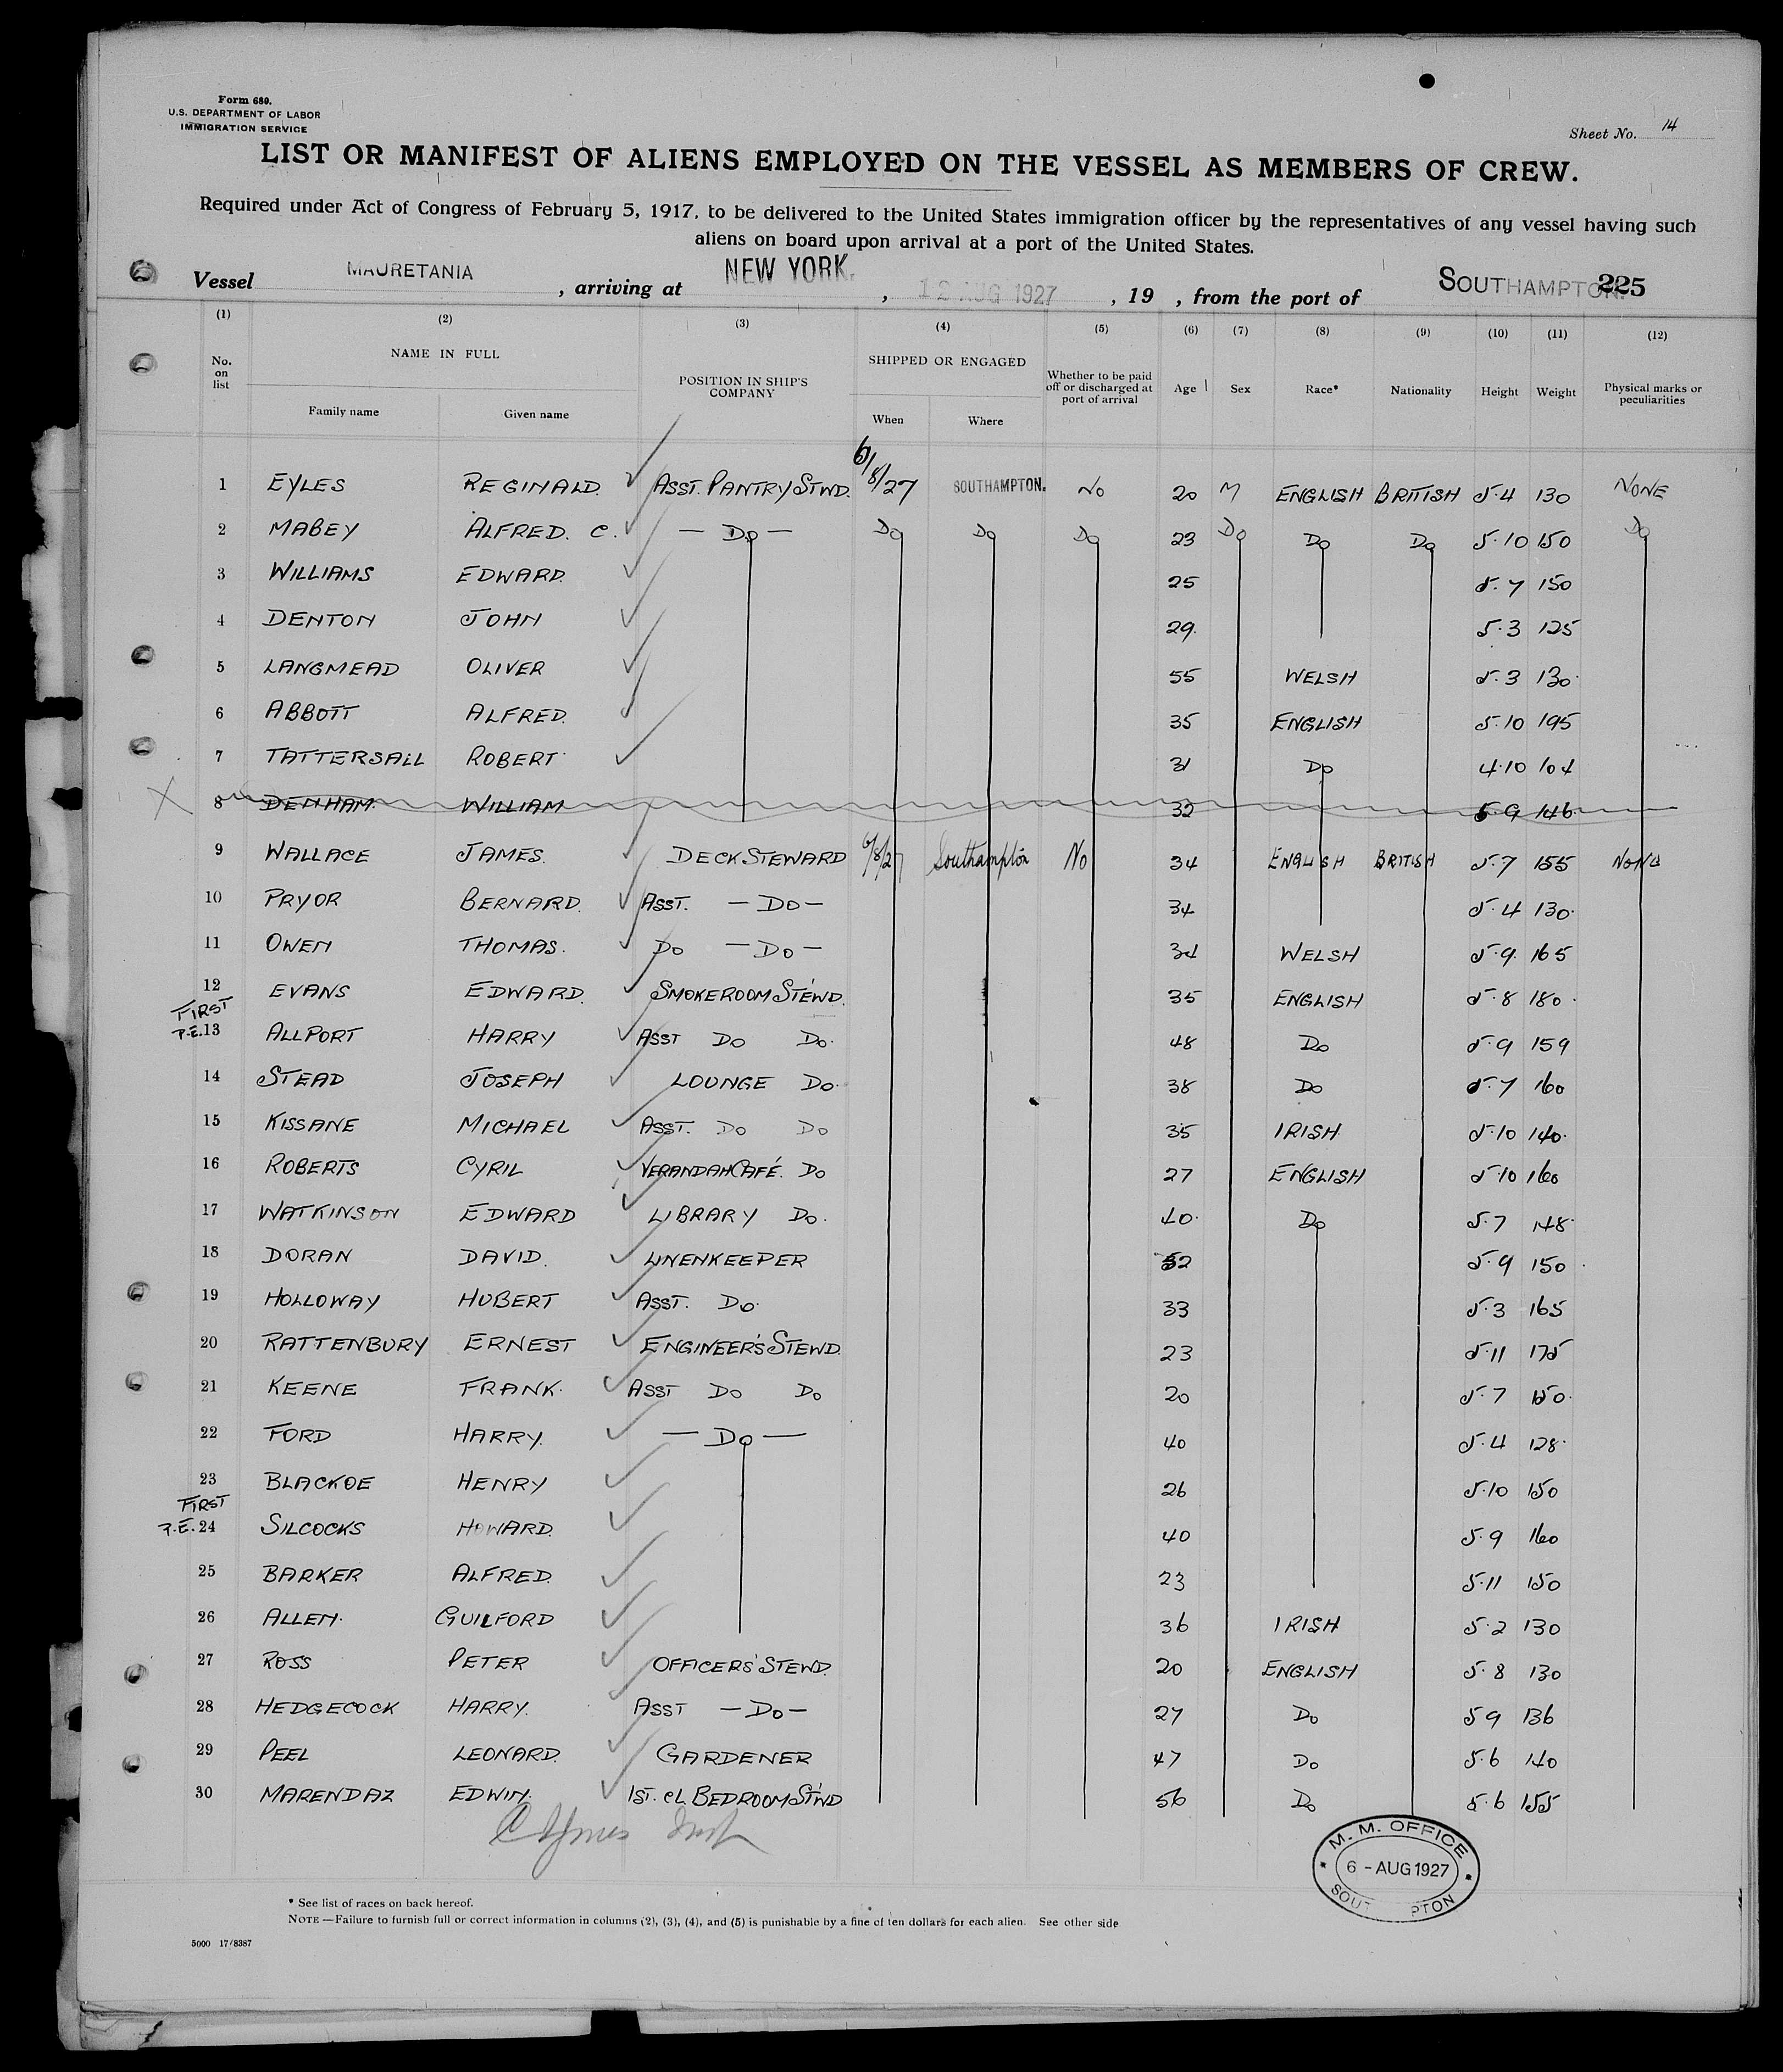 Form 680.
U.S. DEPARTMENT OF LABOR
IMMIGRATION SERVICE
Sheet No. 14
LIST OR MANIFEST OF ALIENS EMPLOYED ON THE VESSEL AS MEMBERS OF CREW.
Required under Act of Congress of February 5, 1917, to be delivered to the United States immigration officer by the representatives of any vessel having such
aliens on board upon arrival at a port of the United States.
Vessel MAURETANIA , arriving at NEW YORK. , 12 AUG 1927 , 19 , from the port of SOUTHAMPTON. 225
(1) (2) (3) (4) (5) (6) (7) (8) (9) (10) (11) (12)
No. on list NAME IN FULL Family name Given name POSITION IN SHIP'S COMPANY SHIPPED OR ENGAGED When Where Whether to be paid off or discharged at port of arrival Age Sex Race* Nationality Height Weight Physical marks or peculiarities
1 EYLES REGINALD. ASST. PANTRY STWD. 6/8/27 SOUTHAMPTON. NO 20 M ENGLISH BRITISH 5.4 130 NONE
2 MABEY ALFRED. C. — DO — DO DO DO 23 DO DO DO 5.10 150 DO
3 WILLIAMS EDWARD. 25 5.7 150
4 DENTON JOHN 29. 5.3 125
5 LANGMEAD OLIVER 55 WELSH 5.3 130.
6 ABBOTT ALFRED. 35 ENGLISH 5.10 195
7 TATTERSALL ROBERT. 31 DO 4.10 104
8 DENHAM. WILLIAM 32 5.9 146.
9 WALLACE JAMES. DECK STEWARD 6/8/27 Southampton No 34 ENGLISH BRITISH 5.7 155 NONE
10 PRYOR BERNARD. ASST. — DO — 34 5.4 130.
11 OWEN THOMAS. DO — DO — 34 WELSH 5.9. 165
12 EVANS EDWARD. SMOKEROOM STEWD. 35 ENGLISH 5.8 180.
FIRST
P.E. 13 ALLPORT HARRY ASST DO DO. 48 DO 5.9 159
14 STEAD JOSEPH LOUNGE DO. 38 DO 5.7 160
15 KISSANE MICHAEL ASST. DO DO 35 IRISH. 5.10 140.
16 ROBERTS CYRIL VERANDAH CAFÉ. DO 27 ENGLISH 5.10 160
17 WATKINSON EDWARD LIBRARY DO. 40. DO 5.7 148.
18 DORAN DAVID. LINENKEEPER 52 5.9 150.
19 HOLLOWAY HUBERT ASST. DO. 33 5.3 165
20 RATTENBURY ERNEST ENGINEER'S STEWD. 23 5.11 175
21 KEENE FRANK. ASST DO DO 20 5.7 150.
22 FORD HARRY. — DO — 40 5.4 128.
23 BLACKOE HENRY 26 5.10 150
FIRST
P.E. 24 SILCOCKS HOWARD. 40 5.9 160
25 BARKER ALFRED. 23 5.11 150
26 ALLEN. GUILFORD 36 IRISH 5.2 130
27 ROSS PETER OFFICERS' STEWD. 20 ENGLISH 5.8 130
28 HEDGECOCK HARRY. ASST — DO — 27 DO 5 9 136
29 PEEL LEONARD. GARDENER 47 DO 5.6 140
30 MARENDAZ EDWIN. 1ST. CL BEDROOM STWD 56 DO 5.6 155
M. M. OFFICE
6 - AUG 1927
SOUT PTON
* See list of races on back hereof.
NOTE—Failure to furnish full or correct information in columns (2), (3), (4), and (5) is punishable by a fine of ten dollars for each alien. See other side
5000 17/8387